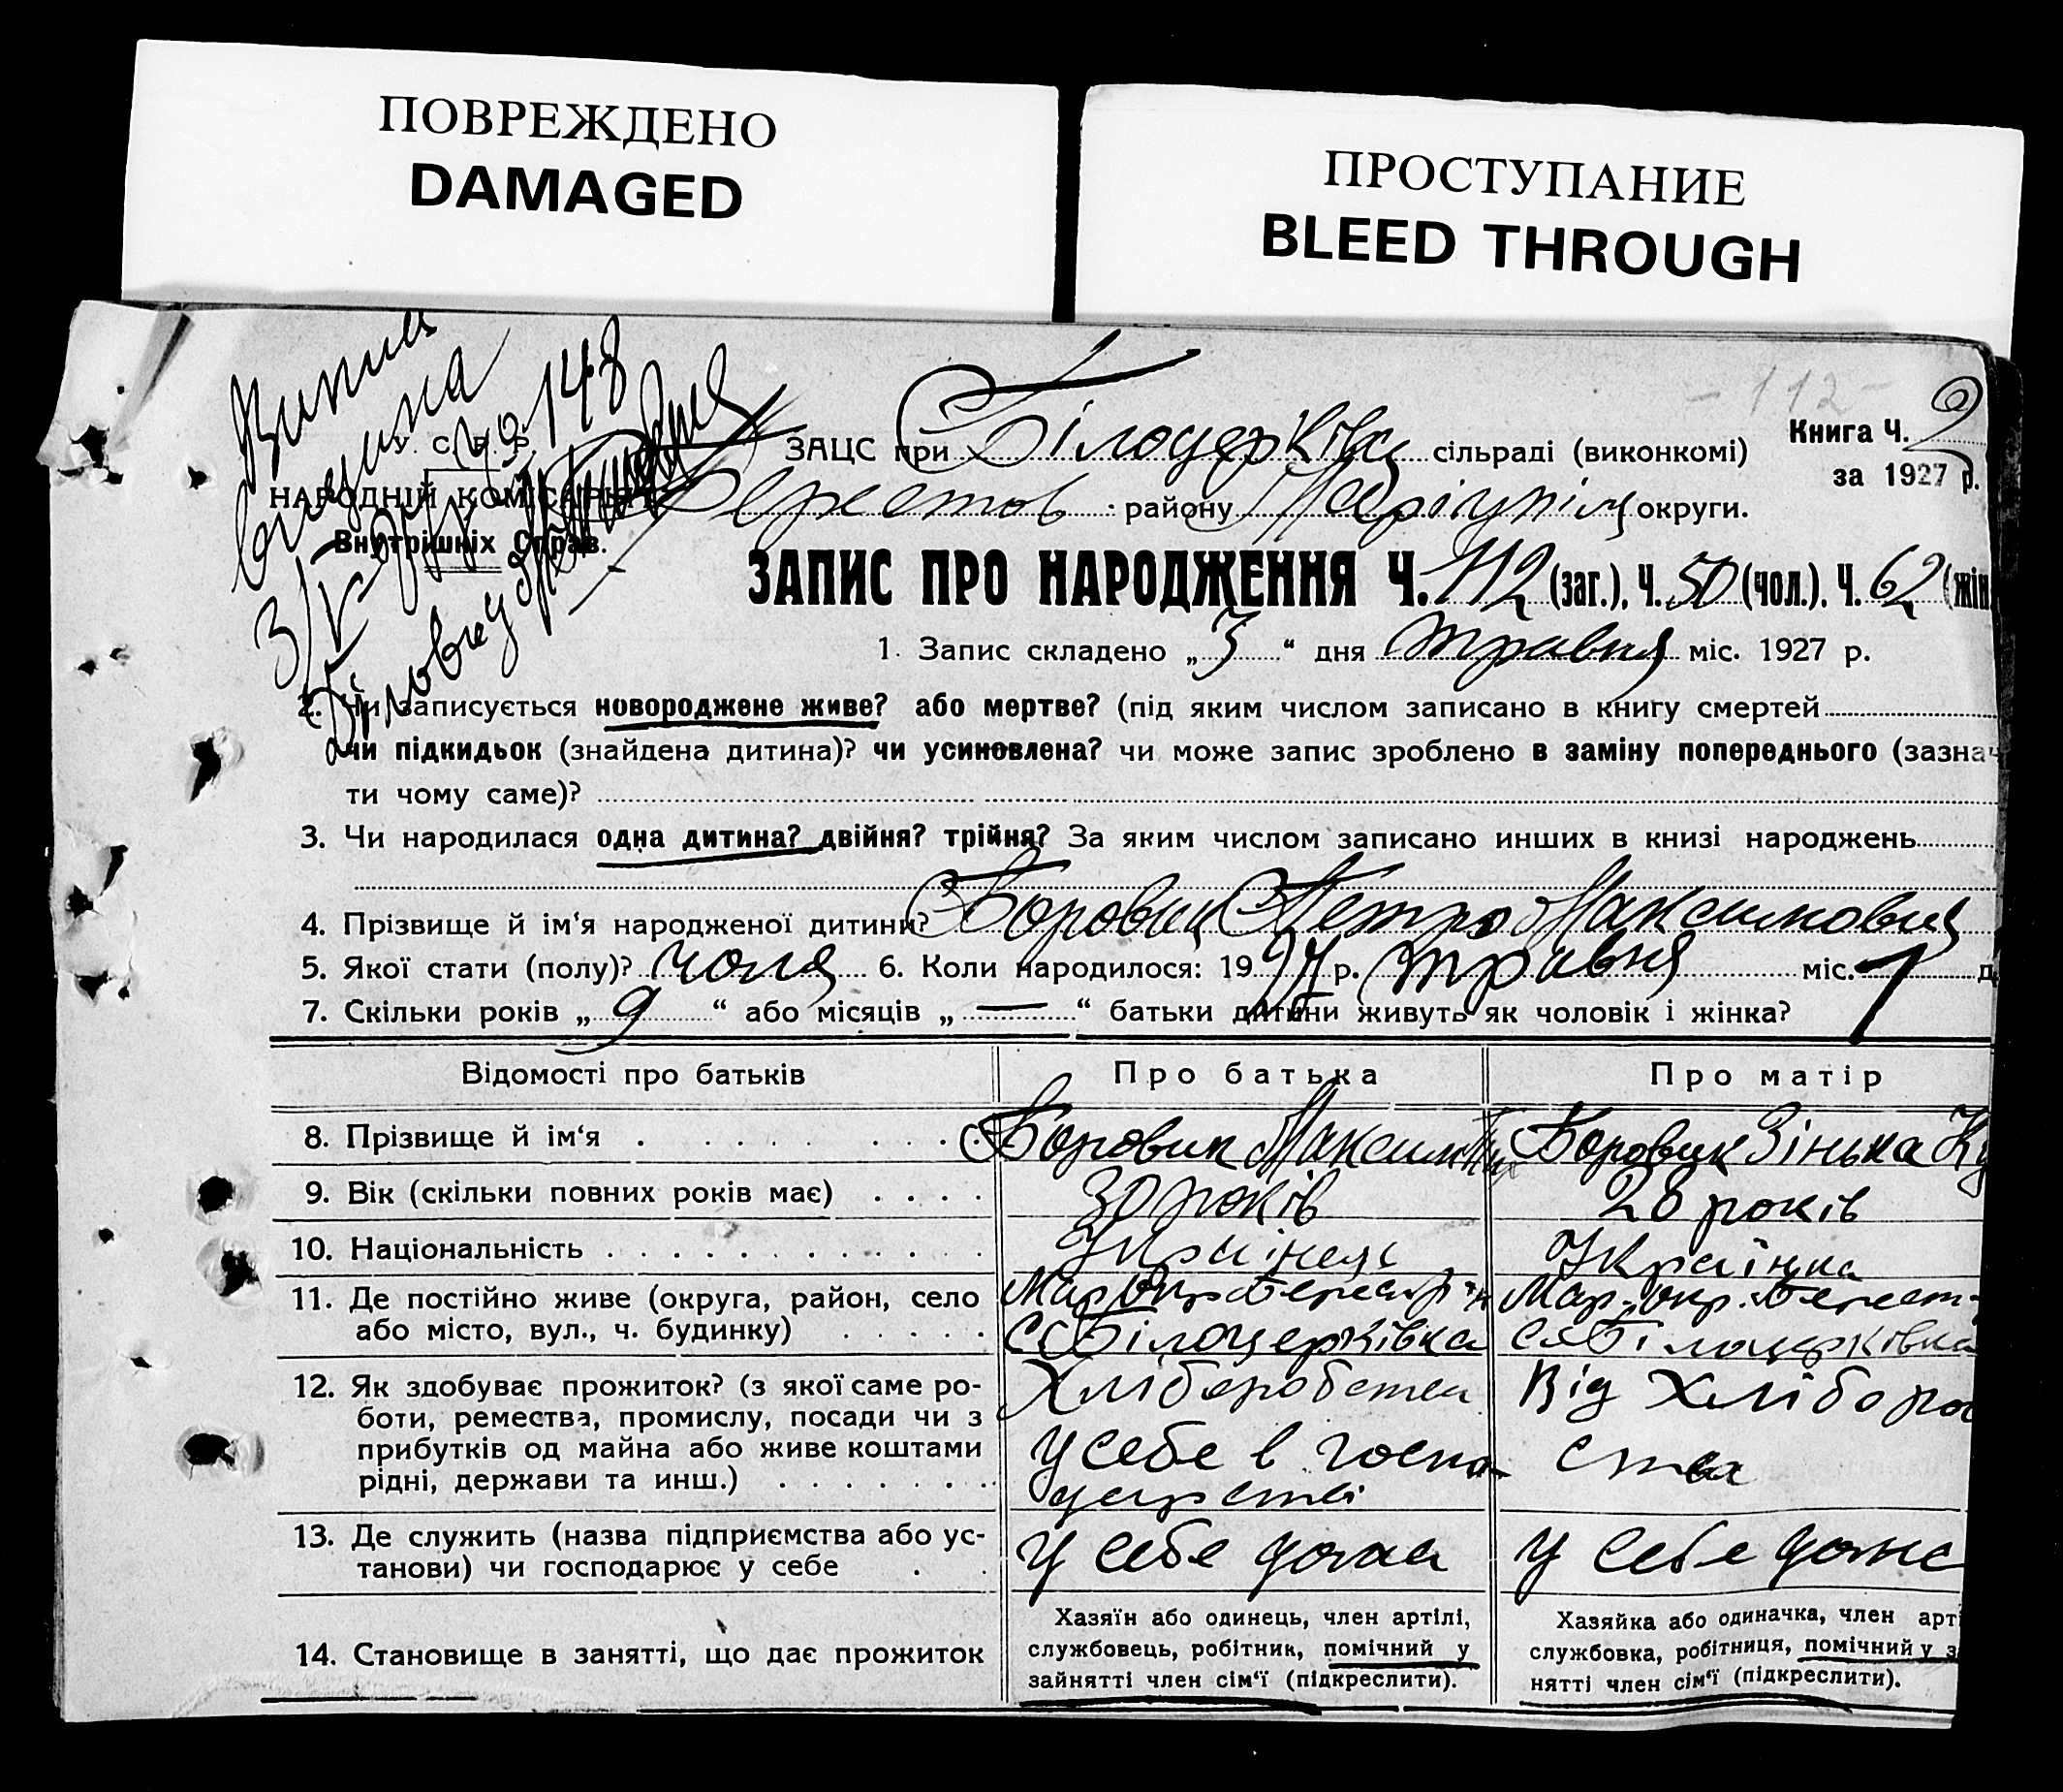 ПОВРЕЖДЕНО
DAMAGED
ПРОСТУПАНИЕ
BLEED THROUGH
- 112 -
Книга Ч. 2
за 1927 р.
У. С. Р. Р.
НАРОДНІЙ КОМІСАРІЯТ
Внутрішніх Справ.
148
ЗАЦС при Білоцерківц сільраді (виконкомі)
Берестов. району Маріупіл округи.
ЗАПИС ПРО НАРОДЖЕННЯ Ч. 112 (заг.), Ч. 50 (чол.), Ч. 62 (жін
1. Запис складено „ 3 “ дня травня міс. 1927 р.
2. Чи записується новороджене живе? або мертве? (під яким числом записано в книгу смертей
чи підкидьок (знайдена дитина)? чи усиновлена? чи може запис зроблено в заміну попереднього (зазнач
ти чому саме)?
3. Чи народилася одна дитина? двійня? трійня? За яким числом записано инших в книзі народжень
4. Прізвище й ім‘я народженої дитини? Боровик Петро Максимович
5. Якої стати (полу)? чолов 6. Коли народилося: 1927 р. травня міс. 1 д
7. Скільки років „ 9 “ або місяців „ — “ батьки дитини живуть як чоловік і жінка?
Відомості про батьків Про батька Про матір
8. Прізвище й ім‘я Боровик Максим Боровик Зінька Ку
9. Вік (скільки повних років має) 30 років 28 років
10. Національність Украінець Українка
11. Де постійно живе (округа, район, село Мар. Окр. Берест. Р-н Мар. Окр. Берест.
або місто, вул., ч. будинку) с. Білоцерківка с. Білоцерківка
12. Як здобуває прожиток? (з якої саме ро- Хліборобство Від хліборо
боти, ремества, промислу, посади чи з
прибутків од майна або живе коштами у себе в госпо- ства
рідні, держави та инш.) дарстві
13. Де служить (назва підприємства або ус- у себе дома у себе дома
танови) чи господарює у себе
14. Становище в занятті, що дає прожиток
Хазяїн або одинець, член артілі,
службовець, робітник, помічний у
зайнятті член сім‘ї (підкреслити).
Хазяйка або одиначка, член арті
службовка, робітниця, помічний у з
нятті член сім‘ї (підкреслити).